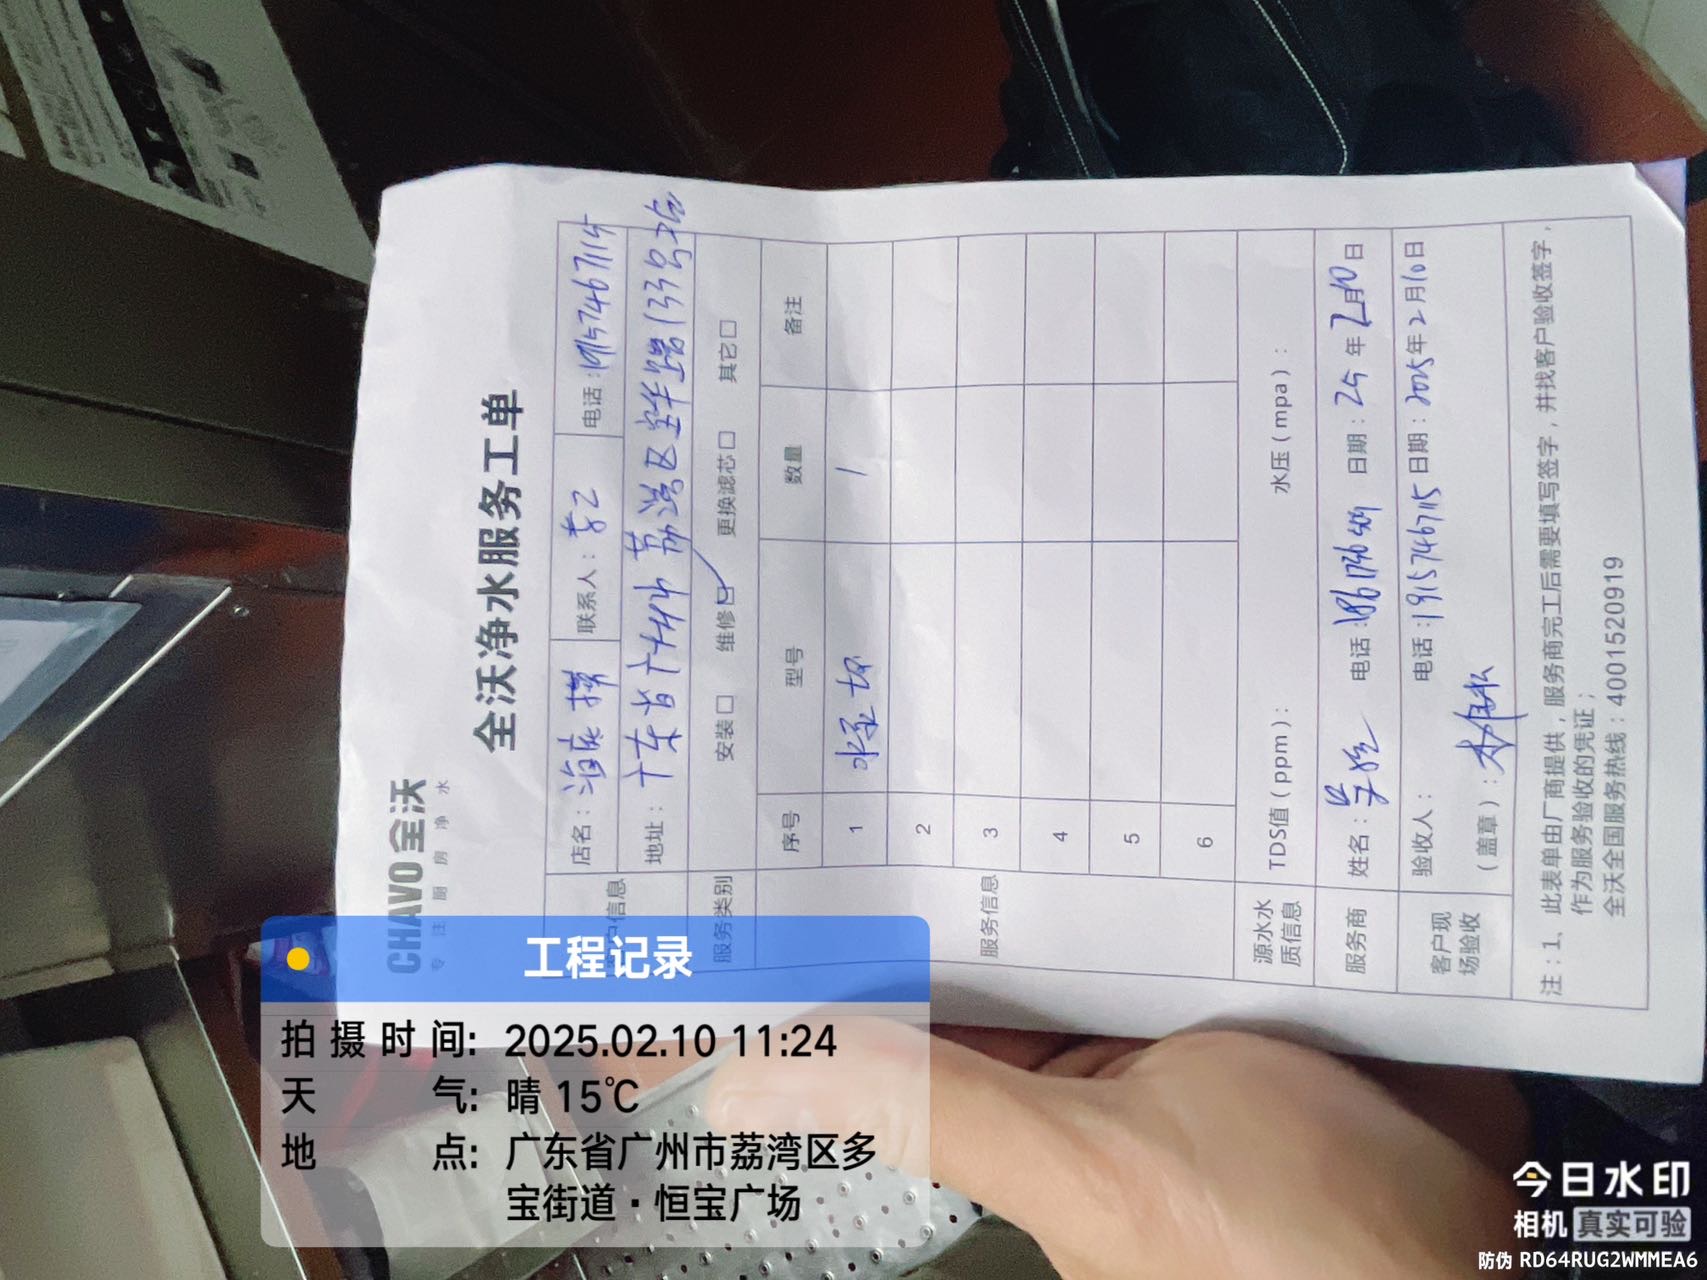 CHAVO全沃
专注厨房净水
全沃净水服务工单
客户信息
店名: 海底捞 联系人: 李工 电话: 19157467115
地址: 广东省广州市荔湾区宝华路133号
服务类别 安装□ 维修☑ 更换滤芯□ 其它□
服务信息
序号 型号 数量 备注
1 1
2
3
4
5
6
源水水质信息 TDS值(ppm): 水压(mpa):
服务商 姓名: 电话: 日期: 25年2月10日
客户现场验收 验收人: 电话: 19157467115 日期: 2025年2月10日
(盖章):
注: 1、此表单由厂商提供, 服务商完工后需要填写签字, 并找客户验收签字,
作为服务验收的凭证;
全沃全国服务热线: 4001520919
工程记录
拍摄时间: 2025.02.10 11:24
天气: 晴 15℃
地点: 广东省广州市荔湾区多
宝街道·恒宝广场
今日水印
相机 真实可验
防伪 RD64RUG2WMMEA6